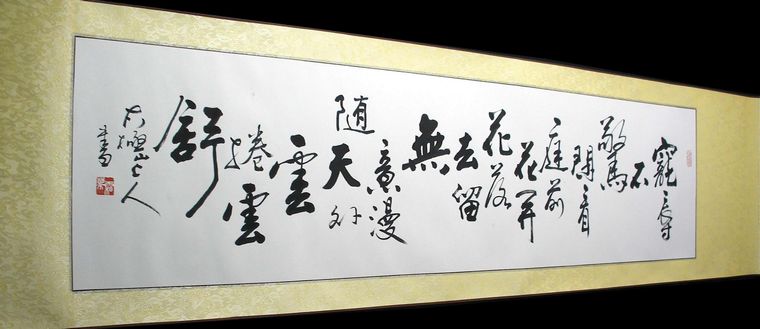 寵辱
不
驚
閒看
庭前
花开
花落
去留
無
意漫
随天外
雲
捲雲
舒
極山人
書